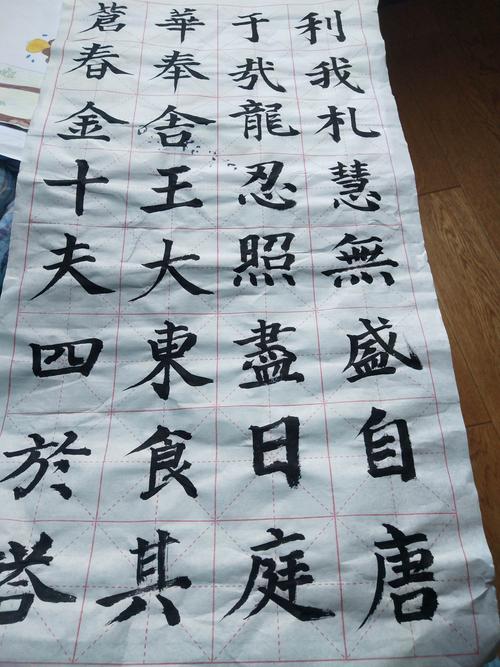 利我札慧無盛自唐
于龍忍照盡日庭
華奉舍王大東食其
蒼春金十夫四於